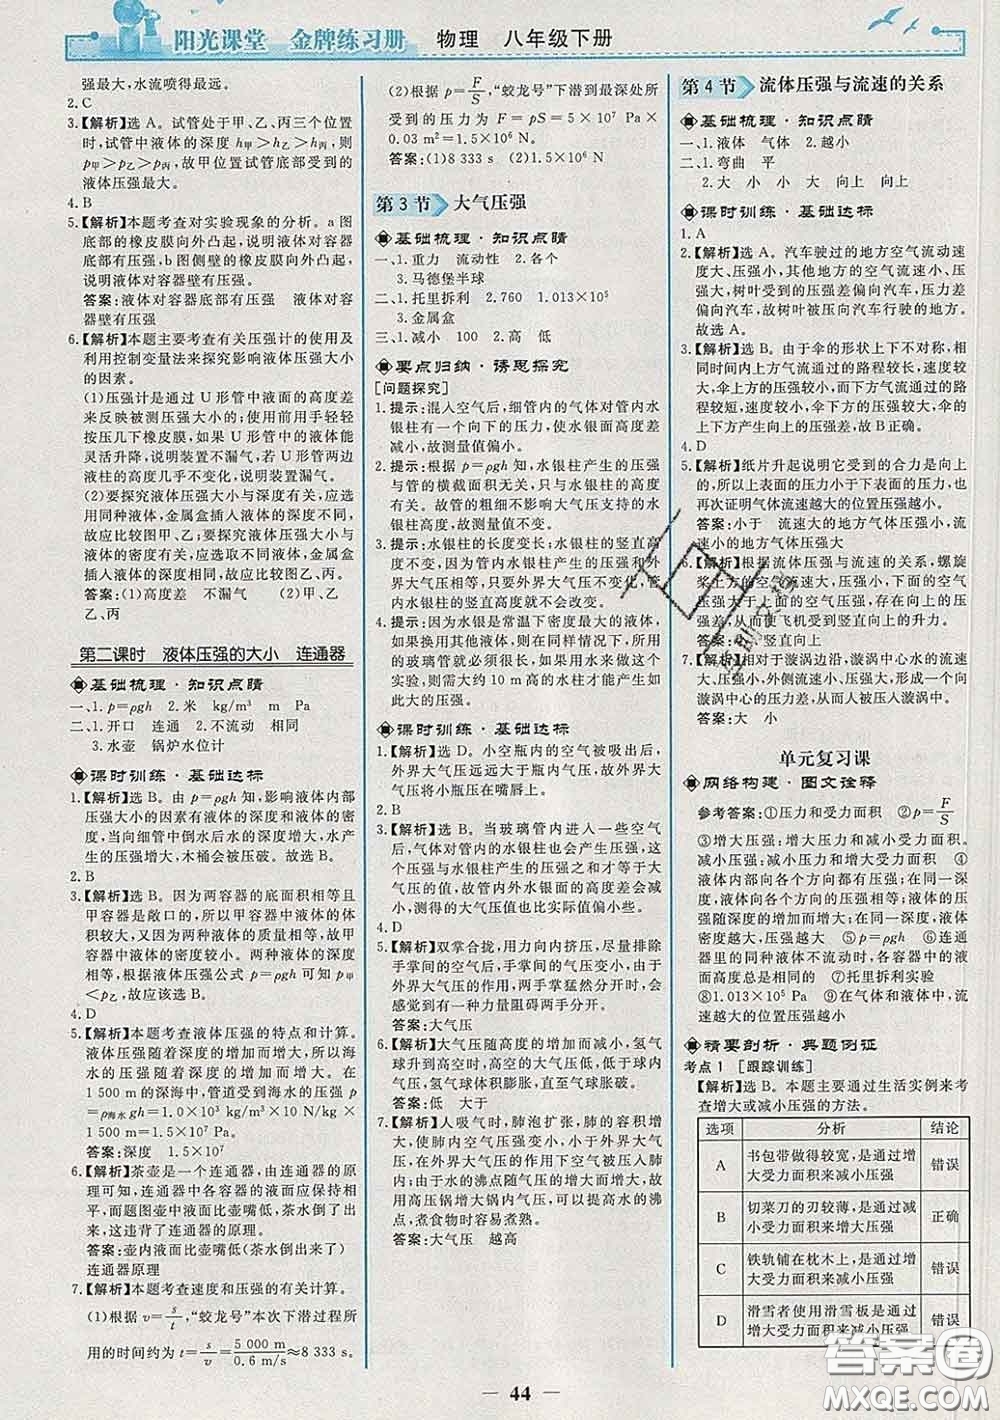 阳光课堂 金牌练习册 物理 八年级下册
强最大,水流喷得最远。
2.C
3.【解析】选 A。试管处于甲、乙、丙三个位置
时,试管中液体的深度 h甲>h乙>h丙,则
p甲>p乙>p丙,故甲位置试管底部受到的
液体压强最大。
4.B
5.【解析】本题考查对实验现象的分析。a 图
底部的橡皮膜向外凸起,说明液体对容器
底部有压强,b 图侧壁的橡皮膜向外凸起,
说明液体对容器侧壁有压强。
答案:液体对容器底部有压强 液体对容
器壁有压强
6.【解析】本题主要考查有关压强计的使用及
利用控制变量法来探究影响液体压强大小
的因素。
(1)压强计是通过 U 形管中液面的高度差
来反映被测压强大小的;使用前用手轻轻
按压几下橡皮膜,如果 U 形管中的液体能
灵活升降,说明装置不漏气;若 U 形管两边
液柱的高度几乎不变化,说明装置漏气。
(2)要探究液体压强大小与深度有关,应选
用液体相同,金属盒插入液体的深度不同,
故应比较图甲、乙;要探究液体压强大小与
液体的密度有关,应选用液体不同,金属盒
插入液体的深度相同,故应比较图乙、丙。
答案:(1)高度差 不漏气 (2)甲、乙
乙、丙
第二课时 液体压强的大小 连通器
基础梳理·知识点睛
一、1.p=ρgh 2.米 kg/m³ m Pa
二、1.开口 连通 2.不流动 相同
3.水壶 锅炉水位计
课时训练·基础达标
1.【解析】选 B。由 p=ρgh 知,影响液体内部
压强大小的因素有液体的深度和液体的密
度,当向细管中倒水后水的深度增大,水产
生的压强增大,木桶会被压破。故选 B。
2.B
3.【解析】选 B。因为两容器的底面积相等且
甲容器是敞口的,所以甲容器中液体的体
积较大,又因为两种液体的质量相等,故甲
容器中液体的密度较小。两种液体的深度
相等,根据液体压强公式 p=ρgh 可知 p甲
<p乙,故应该选 B。
4.D
5.【解析】本题考查液体压强的特点和计算。
液体压强随着深度的增加而增大,所以海
水的压强随着深度的增加而增大。在
1 500 m 的深海中,管道受到海水的压强 p=
ρ海水gh=1.0×10³ kg/m³×10 N/kg×
1 500 m=1.5×10⁷ Pa。
答案:深度 1.5×10⁷
6.【解析】茶壶是一个连通器,由连通器的原
理可知,连通器各容器中的液面应该相平,
而题图壶中液面比壶嘴低,茶水倒出来了
来,这违背了连通器的原理。
答案:壶内液面比壶嘴低(茶水倒出来了)
连通器原理
7.【解析】本题考查速度和压强的有关计算。
(1)根据 v=s/t,“蛟龙号”本次下潜过程所
用的时间约为 t=s/v=5 000 m/0.6 m/s≈8 333 s。
(2)根据 p=F/S,“蛟龙号”下潜到最深处所
受到的压力为 F=pS=5×10⁷ Pa×
0.03 m²=1.5×10⁶ N。
答案:(1)8 333 s (2)1.5×10⁶ N
第 3 节 大气压强
基础梳理·知识点睛
一、1.重力 流动性 2.各个
3.马德堡半球
二、1.托里拆利 2.760 1.013×10⁵
3.金属盒
三、1.减小 100 2.高 低
要点归纳·诱思探究
[问题探究]
1.提示:混入空气后,细管内的气体对管内水
银柱有一个向下的压力,使水银面高度差
减小,故测量值偏小。
2.提示:由 p=ρgh 知,水银柱产生的压强
与管的横截面积无关,只与水银柱的高度
有关。故管的粗细不影响大气压支持的水
银柱高度,测量值不变。
3.提示:水银柱的长度变长;水银柱的竖直高
度不变。因为水银柱产生的压强和外
界大气压强相等,只要外界大气压不变,水
银柱的竖直高度就不会改变。
4.提示:因为水银是常温下密度最大的液体,
用水银做实验,玻璃管的长度可以短些;所
用的玻璃管太长的话,实验很难成功。如果
用水做实验,需要大约 10 m 高的水柱才能产生如
此大的压强。
课时训练·基础达标
1.【解析】选 D。小空瓶内的空气被吸出后,
外界大气压远远大于瓶内气压,故小空瓶
在外界大气压作用下压在嘴唇上。
2.B
3.【解析】选 B。当玻璃管内进入一些空气
后,气体对管内的水银柱也会产生压强,这
个压强与水银柱产生的压强之和才等于大
气压的值,故管内外水银面的高度差会减
小,测出的大气压值也比实际值偏小。
4.D
5.【解析】双掌合拢,用力向内挤压,尽量排除
手掌间的空气后,手掌间的气压变小,由于
外界大气压的作用,两手掌猛然分开时,会
感觉到有一种力量阻碍两手分开。
答案:大气压
6.【解析】大气压随高度的增加而减小,氢气
球升到高空时,高空的大气压低于球内气
压,氢气球体积膨胀,直至破裂。
答案:低 大于
7.【解析】人吸气时,肺泡扩张,肺的容积增
大,使肺内空气压强变小,小于外界大气压,
在外界大气压的作用下空气被压入肺
内;由于水的沸点随气压的增大而增大,故
用高压锅增大锅内气压,可以提高水的沸
点,煮食物时容易煮熟。
答案:大气压 越高
第 4 节 流体压强与流速的关系
基础梳理·知识点睛
一、1.液体 气体 2.越小
二、1.弯曲 平
2.大 小 小 大 向上 向上
课时训练·基础达标
1.A
2.【解析】选 A。汽车驶过的地方空气流动速
度大、压强小,其他地方的空气流速小、压强
大,树叶受到的压强差偏向汽车,压力差
偏向汽车,故树叶被压向汽车行驶的地方。
故选 A。
3.【解析】选 B。由于伞的形状上下不对称,
相同时间内上方气流通过的路程较长,速
度较大,压强较小,下方气流通过的路
程较短,速度较小,压强较大,伞的
上下方产生向上的压强差,故 B 正确。
4.D
5.【解析】纸片升起说明它受到的合力是向上
的,所以上表面的压力小于下表面的压力,也
再次证明气体流速越大的位置压强越小。
答案:小于 流速大的地方气体压强小,
流速小的地方气体压强大
6.【解析】根据流体压强与流速的关系,螺旋
桨上方的空气流速大于下方的空气
流速,下方压强大于上方压强,产生向上的压
强差,从而使飞机受到竖直向上的升力。
答案:小 竖直向上
7.【解析】相对于漩涡边沿,漩涡中心水的流速
大、压强小,外侧流速小、压强大,形成一个向
漩涡中心的压力差,从而人被压入漩涡中。
答案:大 小
单元复习课
网络构建·图文诠释
参考答案:①压力和受力面积 ②p=F/S
③增大压强:增大压力和减小受力面积。
减小压强:减小压力和增大受力面积 ④
液体内部各个方向都有压强;在同一深
度,液体向各个方向的压强相等;液体的
压强随深度的增加而增大;同一深度,液体
密度越大,压强越大 ⑤p=ρgh ⑥连通
器里的同种液体不流动时,各容器中的液
面高度总是相同的 ⑦托里拆利实验
⑧1.013×10⁵ ⑨在气体和液体中,流速
越大的位置压强越小
精要剖析·典题例证
考点 1 [跟踪训练]
【解析】选 B。本题主要通过生活实例来考
查增大或减小压强的方法。
选项 分析 结论
A 书包带做得较宽,是通过增大受力面积来减小压强 错误
B 切菜刀的刃较薄,是通过减小受力面积来增大压强 正确
C 铁轨铺在枕木上,是通过增大受力面积来减小压强 错误
D 滑雪者使用滑雪板是通过增大受力面积来减小压强 错误
44
答案圈
MXQE.COM